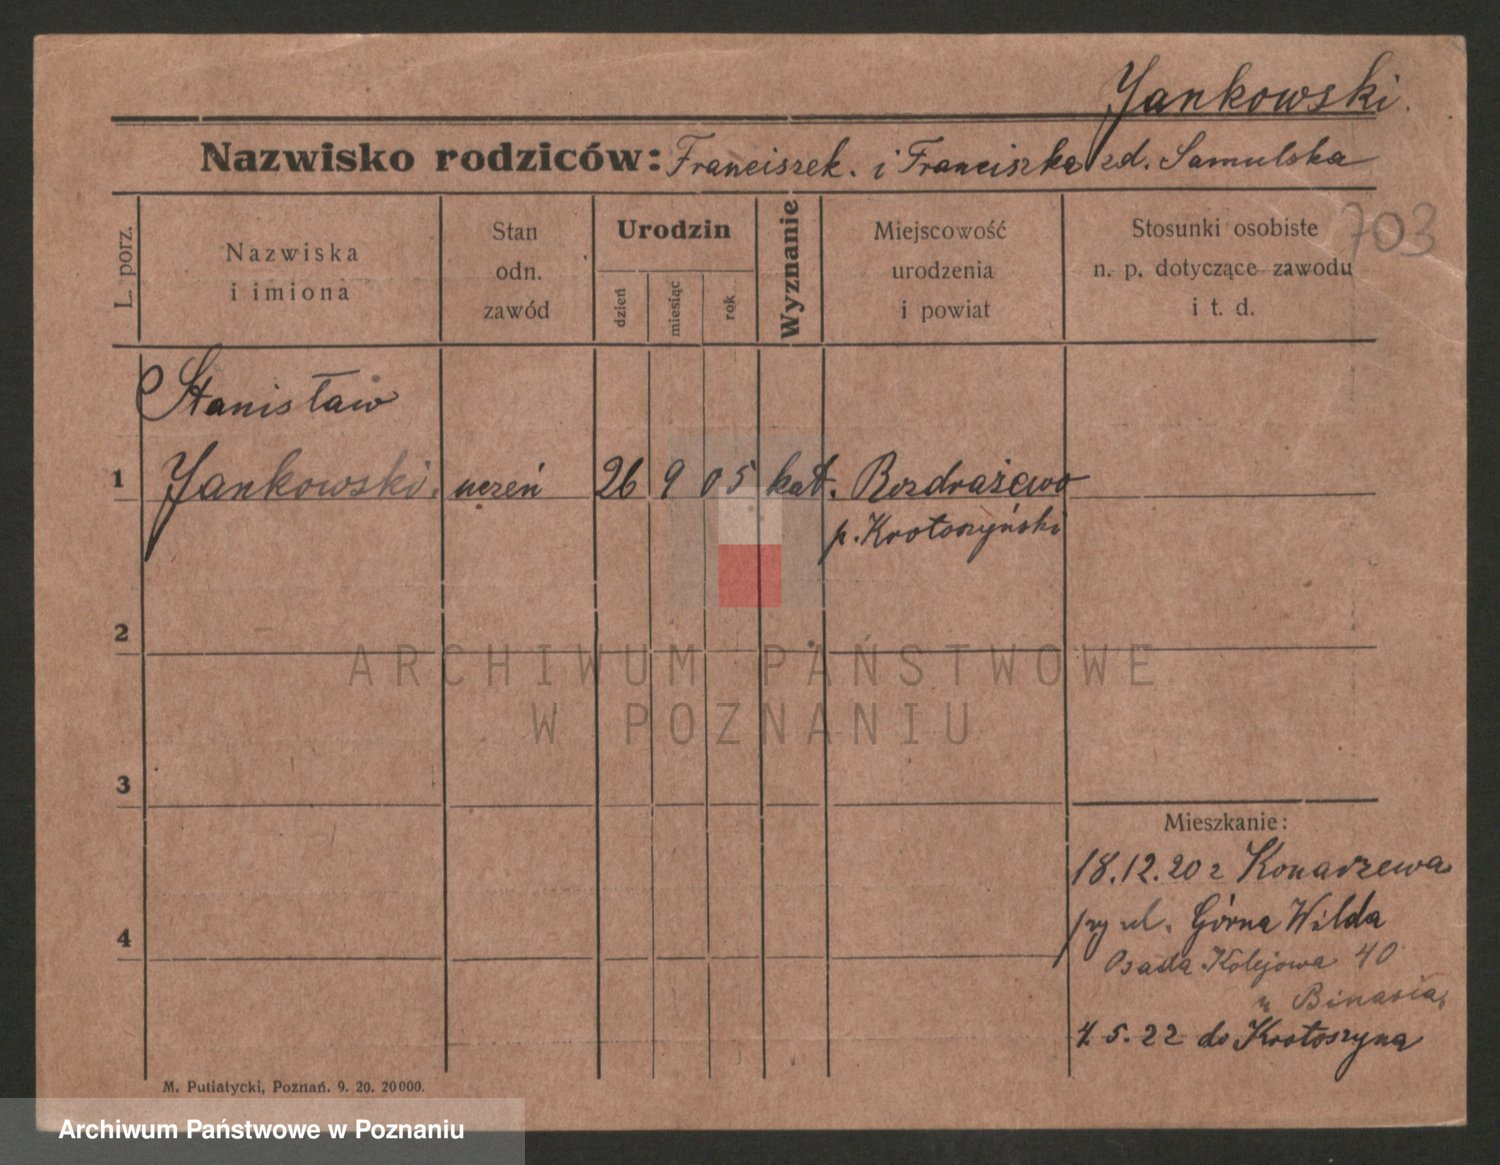 Jankowski.
Nazwisko rodziców: Franciszek. i Franciszka zd. Samulska
703
L. porz.
Nazwiska
i imiona
Stan
odn.
zawód
Urodzin
dzień
miesiąc
rok
Wyznanie
Miejscowość
urodzenia
i powiat
Stosunki osobiste
n. p. dotyczące zawodu
i t. d.
Stanisław
1 Jankowski. uczeń 26 9 05 kat. Rozdrażewo
p. Krotoszyński
2
ARCHIWUM PAŃSTWOWE
W POZNANIU
3
Mieszkanie:
18.12.20 z Konarzewa
przy ul. Górna Wilda
4
Osada Kolejowa 40
u
5.22 do Krotoszyna
M. Putiatycki, Poznań. 9. 20. 20000.
Archiwum Państwowe w Poznaniu